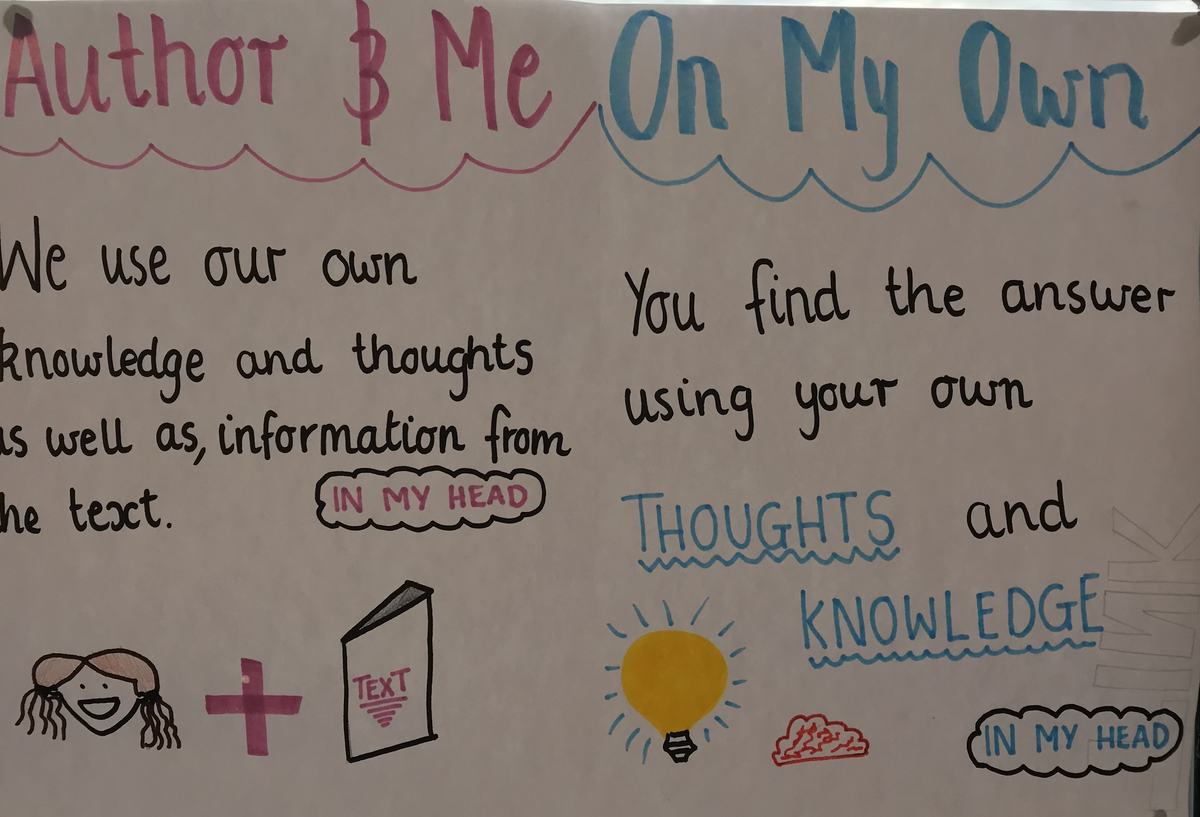 Author & Me
We use our own
knowledge and thoughts
as well as, information from
the text.
IN MY HEAD
TEXT
On My Own
You find the answer
using your own
THOUGHTS and
KNOWLEDGE
IN MY HEAD